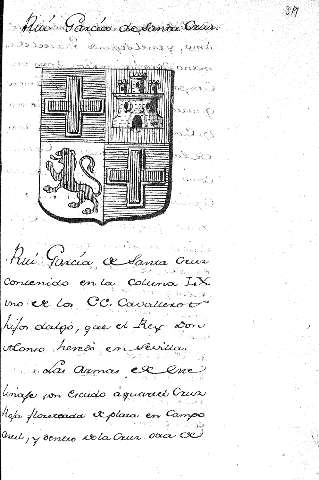 319
Rui García de Santa Cruz.
Rui García de Santa Cruz
contenido en la coluna LX
vno de los CC. Cavalleros
hijos dalgo, que el Rey Don
Alonso heredò en Sevilla.
Las Armas de este
linaje son Escudo aquartel Cruz
Roja floreteada de plata en Campo
azul, y dentro de la Cruz otra de